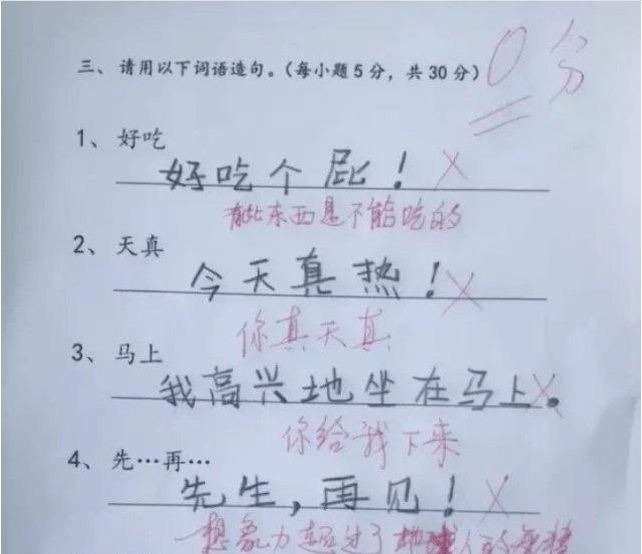 三、请用以下词语造句。(每小题5分，共30分)
0分
1、好吃
好吃个屁！
有些东西是不能吃的
2、天真
今天真热！
你真天真
3、马上
我高兴地坐在马上。
你给我下来
4、先…再…
先生，再见！
想象力超过了地球人的